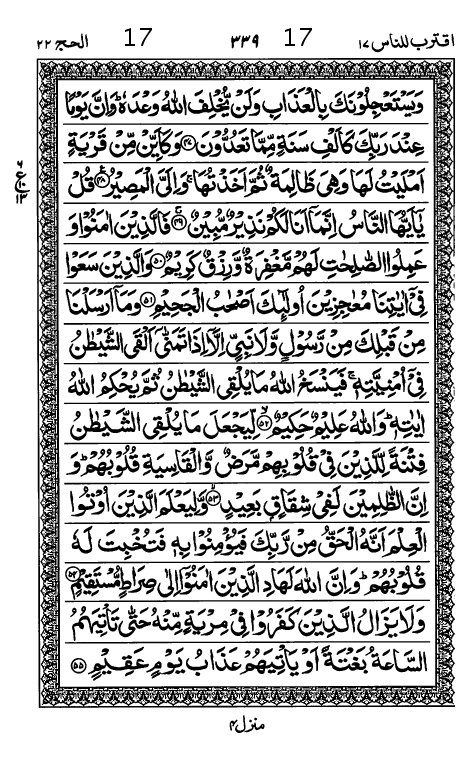 اقترب للناس ۱۷ 17 ۳۳۹ 17 الحج ۲۲
وَيَسْتَعْجِلُوْنَكَ بِالْعَذَابِ وَلَنْ يُّخْلِفَ اللّٰهُ وَعْدَهٗ ؕ وَاِنَّ يَوْمًا
عِنْدَ رَبِّكَ كَاَلْفِ سَنَةٍ مِّمَّا تَعُدُّوْنَ ﴿۴۷﴾ وَكَاَيِّنْ مِّنْ قَرْيَةٍ
اَمْلَيْتُ لَهَا وَهِىَ ظَالِمَةٌ ثُمَّ اَخَذْتُهَا ۚ وَاِلَىَّ الْمَصِيْرُ ﴿۴۸﴾ قُلْ
يٰۤاَيُّهَا النَّاسُ اِنَّمَاۤ اَنَا لَكُمْ نَذِيْرٌ مُّبِيْنٌ ﴿۴۹﴾ فَالَّذِيْنَ اٰمَنُوْا وَ
عَمِلُوا الصّٰلِحٰتِ لَهُمْ مَّغْفِرَةٌ وَّرِزْقٌ كَرِيْمٌ ﴿۵۰﴾ وَالَّذِيْنَ سَعَوْا
فِىْۤ اٰيٰتِنَا مُعٰجِزِيْنَ اُولٰٓئِكَ اَصْحٰبُ الْجَحِيْمِ ﴿۵۱﴾ وَمَاۤ اَرْسَلْنَا
مِنْ قَبْلِكَ مِنْ رَّسُوْلٍ وَّلَا نَبِىٍّ اِلَّاۤ اِذَا تَمَنّٰٓى اَلْقَى الشَّيْطٰنُ
فِىْۤ اُمْنِيَّتِهٖ ۚ فَيَنْسَخُ اللّٰهُ مَا يُلْقِى الشَّيْطٰنُ ثُمَّ يُحْكِمُ اللّٰهُ
اٰيٰتِهٖ ؕ وَاللّٰهُ عَلِيْمٌ حَكِيْمٌ ۙ﴿۵۲﴾ لِّيَجْعَلَ مَا يُلْقِى الشَّيْطٰنُ
فِتْنَةً لِّلَّذِيْنَ فِىْ قُلُوْبِهِمْ مَّرَضٌ وَّالْقَاسِيَةِ قُلُوْبُهُمْ ؕ وَ
اِنَّ الظّٰلِمِيْنَ لَفِىْ شِقَاقٍۭ بَعِيْدٍ ۙ﴿۵۳﴾ وَّلِيَعْلَمَ الَّذِيْنَ اُوْتُوا
الْعِلْمَ اَنَّهُ الْحَقُّ مِنْ رَّبِّكَ فَيُؤْمِنُوْا بِهٖ فَتُخْبِتَ لَهٗ
قُلُوْبُهُمْ ؕ وَاِنَّ اللّٰهَ لَهَادِ الَّذِيْنَ اٰمَنُوْۤا اِلٰى صِرَاطٍ مُّسْتَقِيْمٍ ﴿۵۴﴾
وَلَا يَزَالُ الَّذِيْنَ كَفَرُوْا فِىْ مِرْيَةٍ مِّنْهُ حَتّٰى تَاْتِيَهُمُ
السَّاعَةُ بَغْتَةً اَوْ يَاْتِيَهُمْ عَذَابُ يَوْمٍ عَقِيْمٍ ﴿۵۵﴾
۶
ع
۱۳
منزل ۴